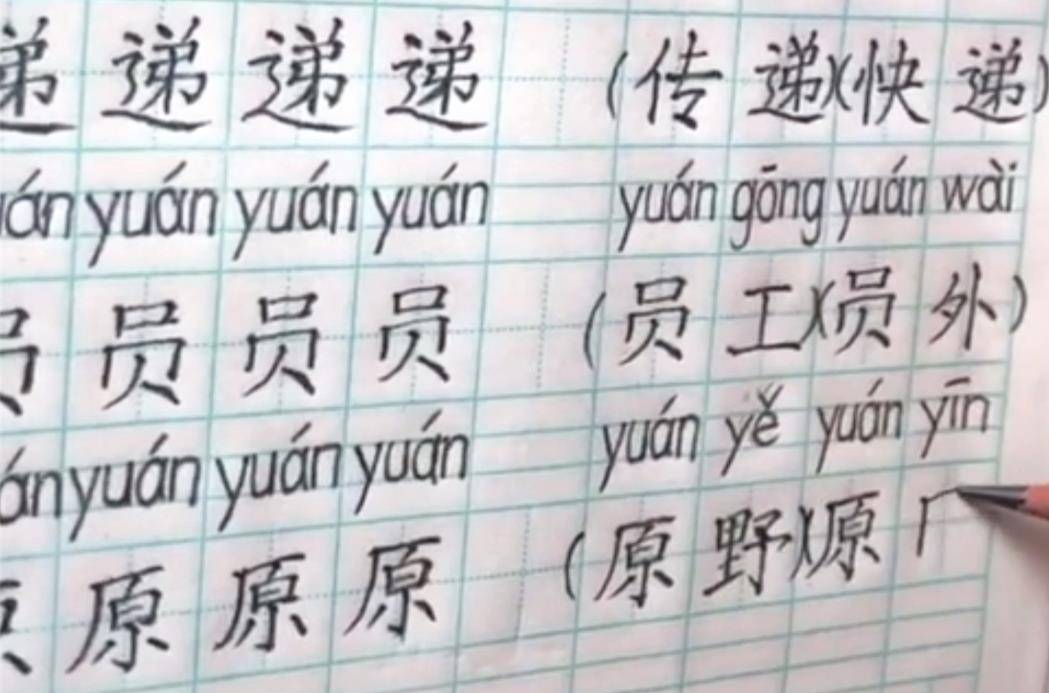 递 递 递 递 (传 递)(快 递)
yuán yuán yuán yuán gōng yuán wài
员 员 员 员 (员 工)(员 外)
yuán yuán yuán yuán yě yuán yīn
原 原 原 (原 野)(原